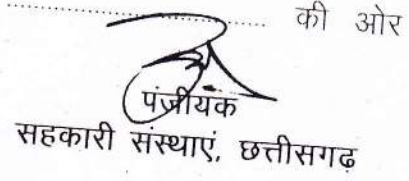 की ओर
पंजीयक
सहकारी संस्थाएं, छत्तीसगढ़